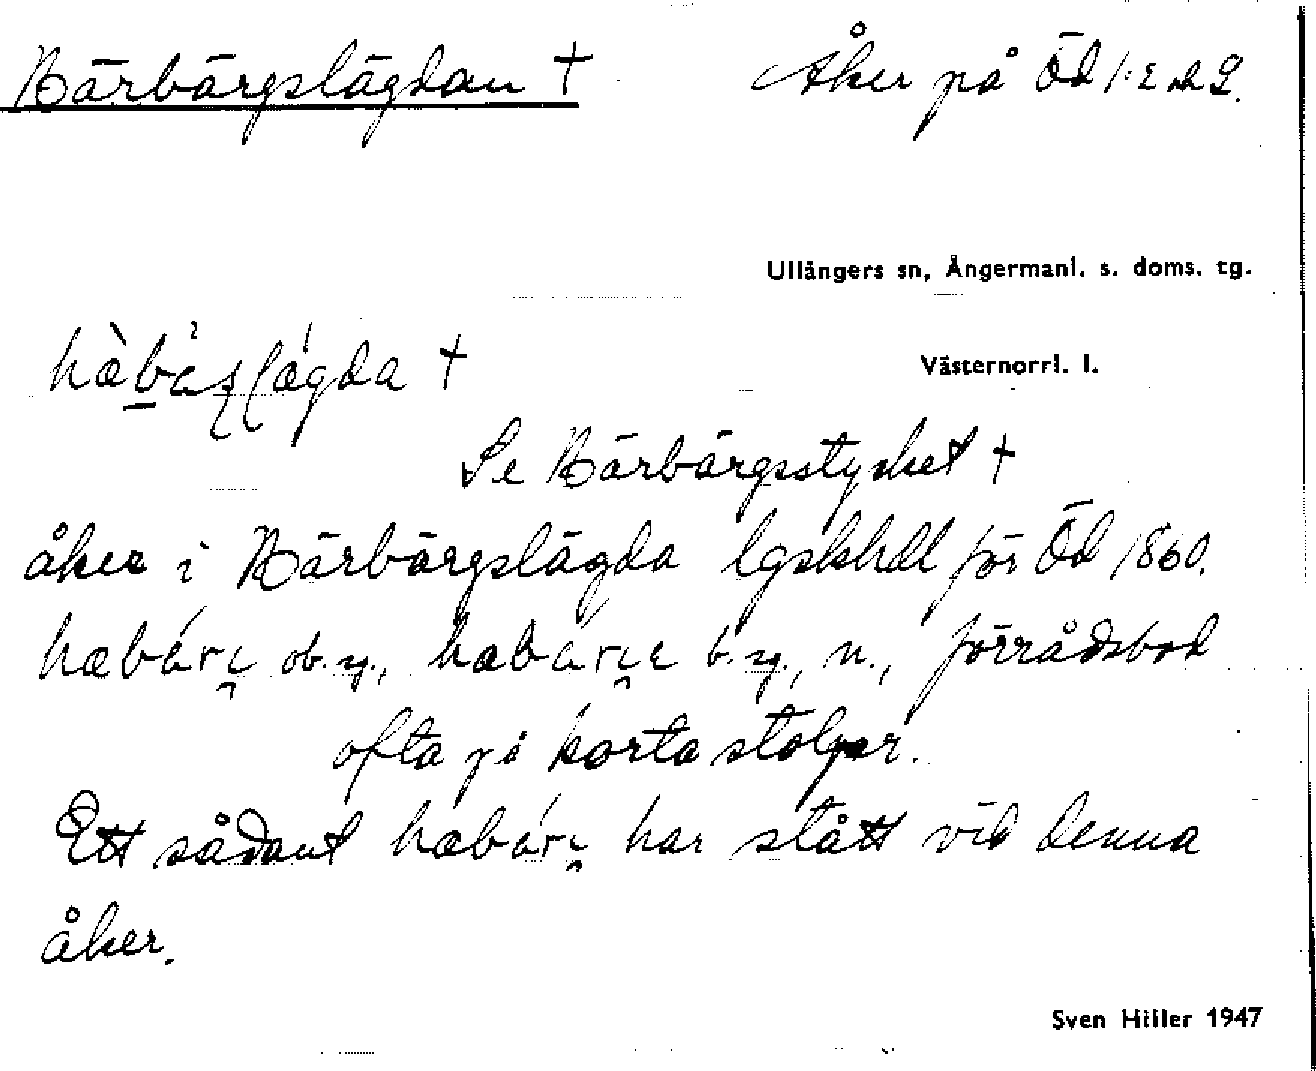 Härbärgslägdan † Åker på Öd 1:2 och 9.
Ullångers sn, Ångermanl. s. doms. tg.
Västernorrl. l.
†
Se Härbärgsstycket †
åker i Härbärgslägda lgskhdl för Öd 1860.
ob. sg., b. sg., n., förrådsbod
ofta på korta stolpar.
Ett sådant har stått vid denna
åker.
Sven Hiller 1947